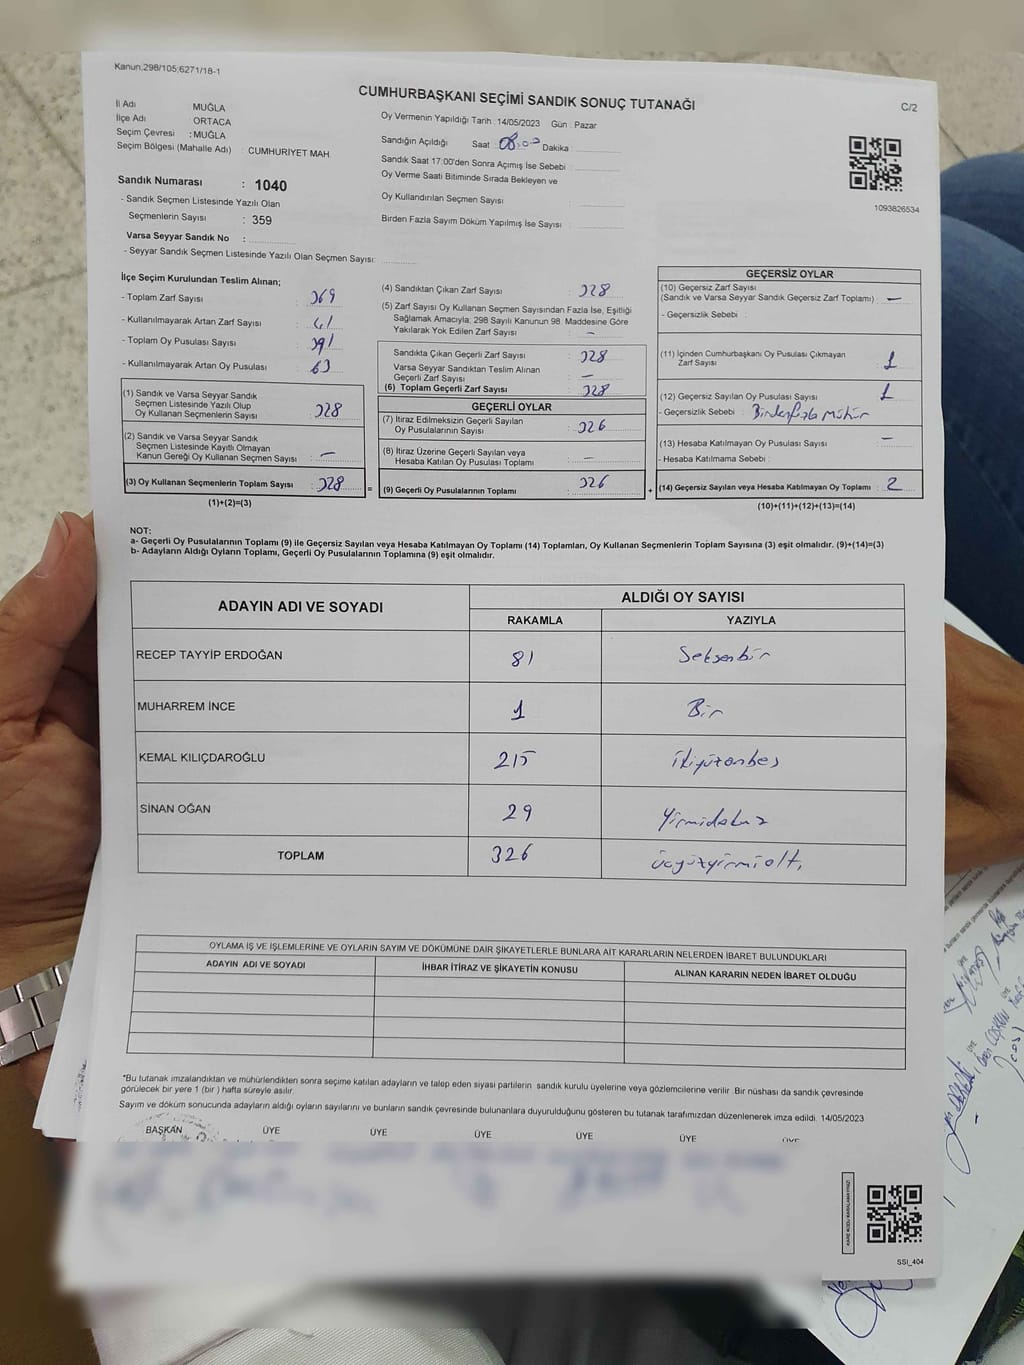 Kanun;298/105;6271/18-1
CUMHURBAŞKANI SEÇİMİ SANDIK SONUÇ TUTANAĞI
C/2
İl Adı MUĞLA
İlçe Adı : ORTACA
Seçim Çevresi : MUĞLA
Seçim Bölgesi (Mahalle Adı) : CUMHURİYET MAH.
Oy Vermenin Yapıldığı Tarih :14/05/2023 Gün : Pazar
Sandığın Açıldığı Saat 08.00 Dakika :
Sandık Saat 17:00'den Sonra Açımış İse Sebebi :
Oy Verme Saati Bitiminde Sırada Bekleyen ve
Oy Kullandırılan Seçmen Sayısı :
Birden Fazla Sayım Döküm Yapılmış İse Sayısı :
1093826534
Sandık Numarası : 1040
- Sandık Seçmen Listesinde Yazılı Olan
Seçmenlerin Sayısı : 359
Varsa Seyyar Sandık No :
- Seyyar Sandık Seçmen Listesinde Yazılı Olan Seçmen Sayısı:
İlçe Seçim Kurulundan Teslim Alınan;
- Toplam Zarf Sayısı : 369
- Kullanılmayarak Artan Zarf Sayısı : 41
- Toplam Oy Pusulası Sayısı : 391
- Kullanılmayarak Artan Oy Pusulası : 63
(1) Sandık ve Varsa Seyyar Sandık
Seçmen Listesinde Yazılı Olup
Oy Kullanan Seçmenlerin Sayısı : 328
(2) Sandık ve Varsa Seyyar Sandık
Seçmen Listesinde Kayıtlı Olmayan
Kanun Gereği Oy Kullanan Seçmen Sayısı : –
(3) Oy Kullanan Seçmenlerin Toplam Sayısı : 328
(1)+(2)=(3)
=
(4) Sandıktan Çıkan Zarf Sayısı : 328
(5) Zarf Sayısı Oy Kullanan Seçmen Sayısından Fazla İse, Eşitliği
Sağlamak Amacıyla; 298 Sayılı Kanunun 98. Maddesine Göre
Yakılarak Yok Edilen Zarf Sayısı : –
Sandıkta Çıkan Geçerli Zarf Sayısı : 328
Varsa Seyyar Sandıktan Teslim Alınan
Geçerli Zarf Sayısı : –
(6) Toplam Geçerli Zarf Sayısı : 328
GEÇERLİ OYLAR
(7) İtiraz Edilmeksizin Geçerli Sayılan
Oy Pusulalarının Sayısı : 326
(8) İtiraz Üzerine Geçerli Sayılan veya
Hesaba Katılan Oy Pusulası Toplamı : –
(9) Geçerli Oy Pusulalarının Toplamı : 326
+
GEÇERSİZ OYLAR
(10) Geçersiz Zarf Sayısı
(Sandık ve Varsa Seyyar Sandık Geçersiz Zarf Toplamı) : –
- Geçersizlik Sebebi :
(11) İçinden Cumhurbaşkanı Oy Pusulası Çıkmayan
Zarf Sayısı : 1
(12) Geçersiz Sayılan Oy Pusulası Sayısı : 1
- Geçersizlik Sebebi : Birdenfazla Mühür
(13) Hesaba Katılmayan Oy Pusulası Sayısı : –
- Hesaba Katılmama Sebebi :
(14) Geçersiz Sayılan veya Hesaba Katılmayan Oy Toplamı : 2
(10)+(11)+(12)+(13)=(14)
NOT:
a- Geçerli Oy Pusulalarının Toplamı (9) ile Geçersiz Sayılan veya Hesaba Katılmayan Oy Toplamı (14) Toplamları, Oy Kullanan Seçmenlerin Toplam Sayısına (3) eşit olmalıdır. (9)+(14)=(3)
b- Adayların Aldığı Oyların Toplamı, Geçerli Oy Pusulalarının Toplamına (9) eşit olmalıdır.
ADAYIN ADI VE SOYADI ALDIĞI OY SAYISI
RAKAMLA YAZIYLA
RECEP TAYYİP ERDOĞAN 81 Seksenbir
MUHARREM İNCE 1 Bir
KEMAL KILIÇDAROĞLU 215 ikiyüzonbeş
SİNAN OĞAN 29 Yirmidokuz
TOPLAM 326 üçyüzyirmialtı
OYLAMA İŞ VE İŞLEMLERİNE VE OYLARIN SAYIM VE DÖKÜMÜNE DAİR ŞİKAYETLERLE BUNLARA AİT KARARLARIN NELERDEN İBARET BULUNDUKLARI
ADAYIN ADI VE SOYADI İHBAR İTİRAZ VE ŞİKAYETİN KONUSU ALINAN KARARIN NEDEN İBARET OLDUĞU
*Bu tutanak imzalandıktan ve mühürlendikten sonra seçime katılan adayların ve talep eden siyasi partilerin sandık kurulu üyelerine veya gözlemcilerine verilir. Bir nüshası da sandık çevresinde
görülecek bir yere 1 (bir ) hafta süreyle asılır.
Sayım ve döküm sonucunda adayların aldığı oyların sayılarını ve bunların sandık çevresinde bulunanlara duyurulduğunu gösteren bu tutanak tarafımızdan düzenlenerek imza edildi. 14/05/2023
BAŞKAN ÜYE ÜYE ÜYE ÜYE ÜYE ÜYE
SSİ_404